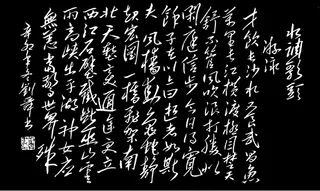 水调歌头
游泳
才饮长沙水又食武昌鱼
万里长江横渡极目楚天
舒不管风吹浪打胜似
闲庭信步今日得宽
馀子在川上曰逝者如斯
夫风樯动龟蛇静
起宏图一桥飞架南
北天堑变通途更立
西江石壁截断巫山云
雨高峡出平湖神女应
无恙当惊世界殊